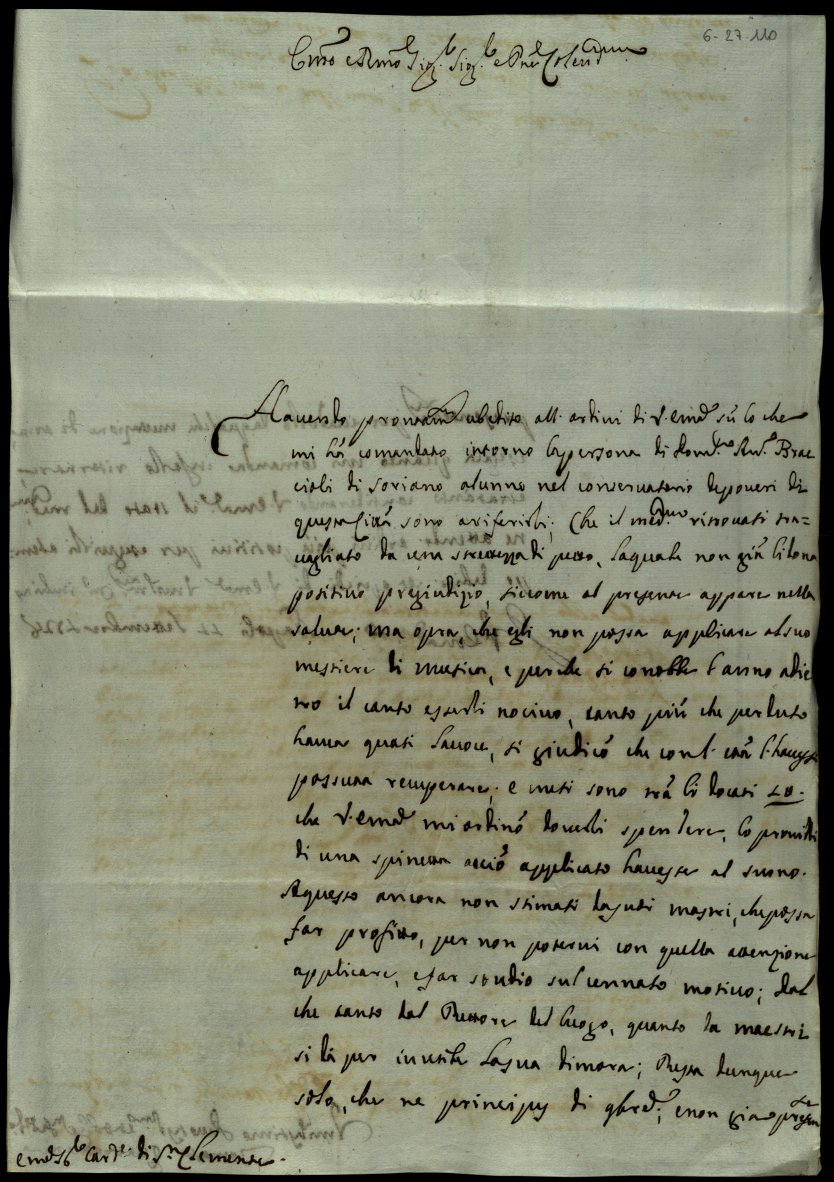 6-27 110
Em̃o e Rmo Sig.r Sig.r e Pne Colendmo
Havendo prontam.te ubedito all'ordini di V. Emza sù lo che
mi hà comandato intorno la persona di Dom.co Ant.o Brac
cioli di Soriano alunno nel conservatorio de poveri di
questa Città sono a riferirli; Che il med.mo ritrovasi tra=
vagliato da una strettezza di petto, la quale non già li dona
positivo pregiudizio, siccome al presente appare nella
salute; ma opra, che egli non possa applicare al suo
mestiere di musica, e perche si conobbe l'anno adie
tro il canto esserli nocivo, tanto più che perduto
havea quasi la voce, si giudicò che con l' età l'havesse
possuta recuperare; e mesi sono trà li docati 20.
che V. Emza mi ordinò doverli spendere, lo providi
di una spinetta acciò applicato havesse al suono.
A questo ancora non stimasi da suoi mastri, che possa
far profitto, per non potervi con quella attenzione
applicare, e far studio sul cennato motivo; dal
che tanto dal Rettore del luogo, quanto da maestri
si dà per inutile la sua dimora; Resta dunque
solo, che ne principij di 8bre; e non già p presen
Em.o Sig.r Card.e di S.n Clemente.